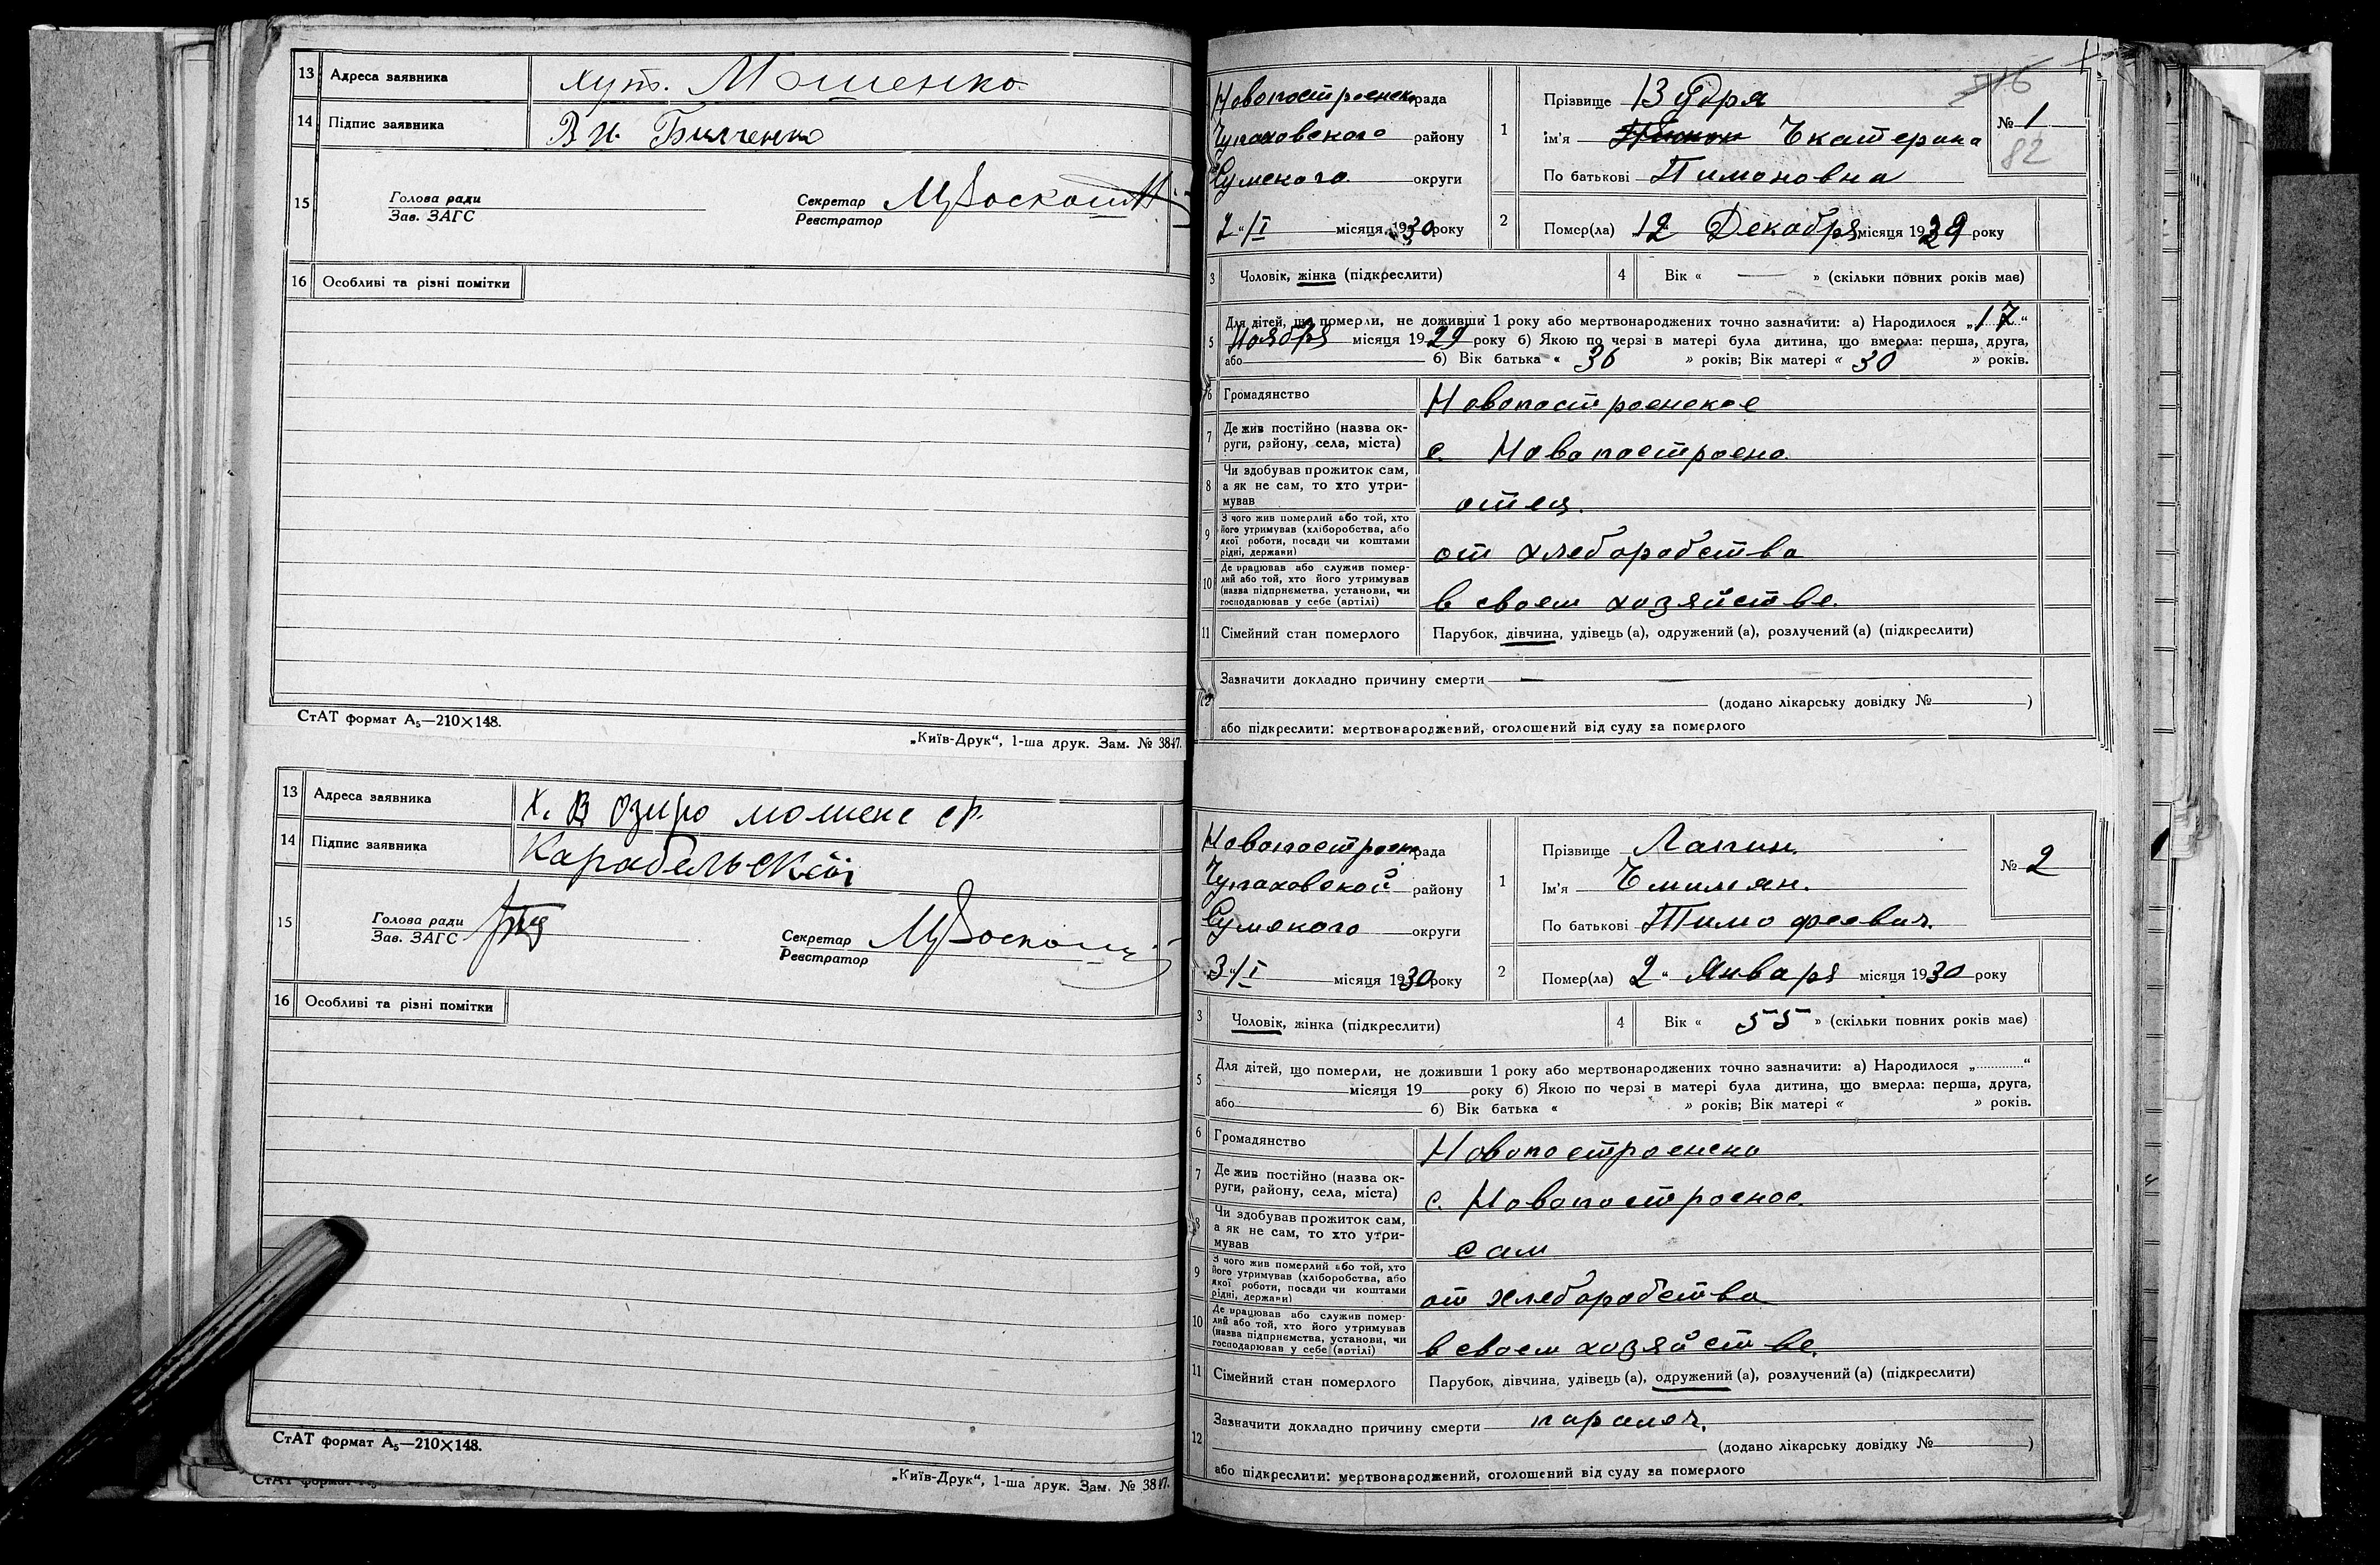 13 Адреса заявника хут. Мошенко
14 Підпис заявника В И. Билченко
15 Голова ради
Зав. ЗАГС
Секретар
Реєстратор
16 Особливі та різні помітки
СтАТ формат А₅—210×148.
„Київ-Друк“, 1-ша друк. Зам. № 3847.
13 Адреса заявника Х. В Озиро мошенс ср.
14 Підпис заявника Карабельскй
15 Голова ради
Зав. ЗАГС
Секретар
Реєстратор
16 Особливі та різні помітки
СтАТ формат А₅—210×148.
„Київ-Друк“, 1-ша друк. Зам. № 3847.
Новопостроенск рада
Чупаховского району
Сумского округи
2 "/I місяця 1930 року
1 Прізвище
Ім'я Екатерина
По батькові Тимоновна
№ 1
82
2 Помер(ла) 12 Декабря місяця 1929 року
3 Чоловік, жінка (підкреслити)
4 Вік « — » (скільки повних років має)
5 Для дітей, що померли, не доживши 1 року або мертвонароджених точно зазначити: а) Народилося „17“
Ноября місяця 1929 року б) Якою по черзі в матері була дитина, що вмерла: перша, друга,
або б) Вік батька « 36 » років; Вік матері « 30 » років.
6 Громадянство Новопостроенское
7 Де жив постійно (назва ок-
руги, району, села, міста) с. Новопостроено
8 Чи здобував прожиток сам,
а як не сам, то хто утри-
мував отец.
9 З чого жив померлий або той, хто
його утримував (хліборобства, або
якої роботи, посади чи коштами
рідні, держави) от хлеборобства
10 Де працював або служив помер-
лий або той, хто його утримував
(назва підприємства, установи, чи
господарював у себе (артілі) в своем хозяйстве.
11 Сімейний стан померлого Парубок, дівчина, удівець (а), одружений (а), розлучений (а) (підкреслити)
12 Зазначити докладно причину смерти —
(додано лікарську довідку № )
або підкреслити: мертвонароджений, оголошений від суду за померлого
Новопостроен рада
Чупаховской району
Сумского округи
3 "/I місяця 1930 року
1 Прізвище Лапин.
Ім'я Емилиян.
По батькові Тимофеевич.
№ 2
2 Помер(ла) 2 " Января місяця 1930 року
3 Чоловік, жінка (підкреслити)
4 Вік « 55 » (скільки повних років має)
5 Для дітей, що померли, не доживши 1 року або мертвонароджених точно зазначити: а) Народилося „ “
місяця 19 року б) Якою по черзі в матері була дитина, що вмерла: перша, друга,
або б) Вік батька « » років; Вік матері « » років.
6 Громадянство Новопостроенско
7 Де жив постійно (назва ок-
руги, району, села, міста) с. Новопостроеное.
8 Чи здобував прожиток сам,
а як не сам, то хто утри-
мував сам
9 З чого жив померлий або той, хто
його утримував (хліборобства, або
якої роботи, посади чи коштами
рідні, держави) от хлеборобства
10 Де працював або служив помер-
лий або той, хто його утримував
(назва підприємства, установи, чи
господарював у себе (артілі) в своем хозяйстве.
11 Сімейний стан померлого Парубок, дівчина, удівець (а), одружений (а), розлучений (а) (підкреслити)
12 Зазначити докладно причину смерти паралеч.
(додано лікарську довідку № )
або підкреслити: мертвонароджений, оголошений від суду за померлого